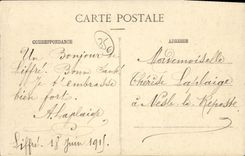 CARTE POSTALE
CORRESPONDANCE
ADRESSE
Un Bonjour de
Liffré. Bonne Santé
Je t'embrasse
bien fort.
A. Laplaige
Liffré. 18 Juin 1915
Mademoiselle
Thérèse Laplaige
à Nesle la Reposte